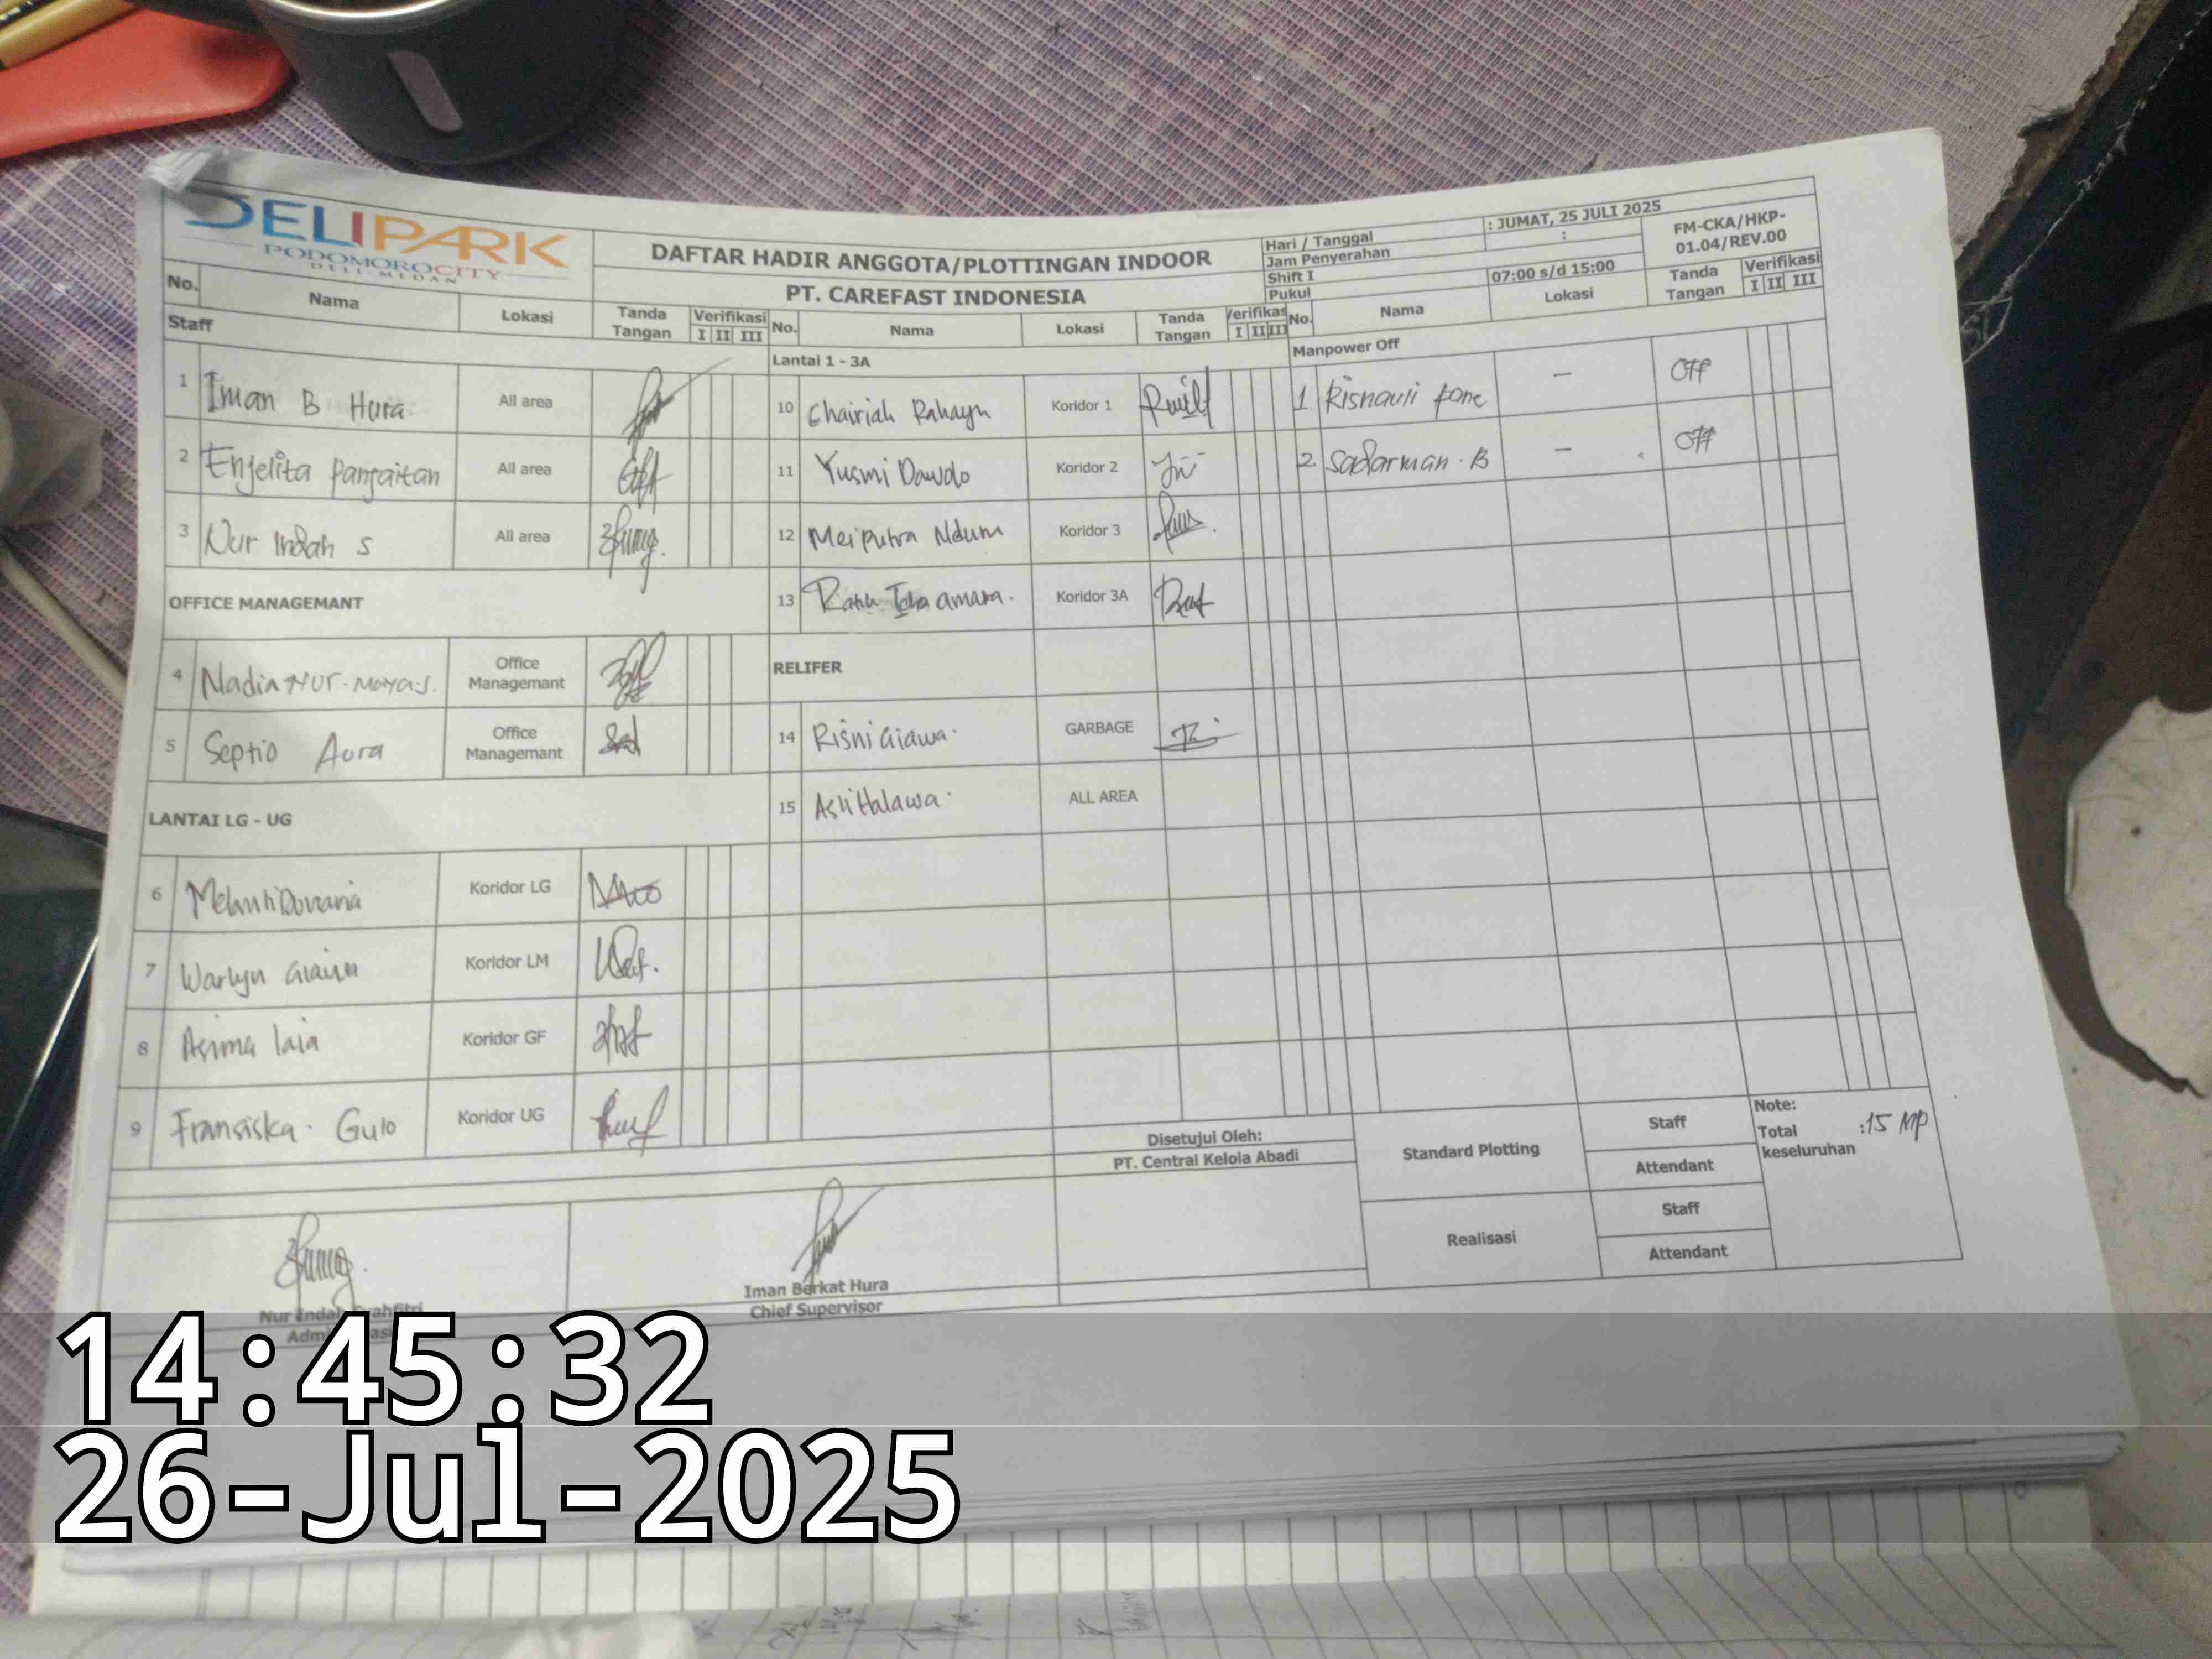 DELIPARK
PODOMOROCITY
DELI MEDAN
DAFTAR HADIR ANGGOTA/PLOTTINGAN INDOOR
PT. CAREFAST INDONESIA
Hari / Tanggal : JUMAT, 25 JULI 2025
Jam Penyerahan :
Shift I
Pukul 07:00 s/d 15:00
FM-CKA/HKP-
01.04/REV.00
No. Nama Lokasi Tanda Tangan Verifikasi I II III
Staff
1 Iman B Hura All area
2 Enjelita Panjaitan All area
3 Nur Indah S All area
OFFICE MANAGEMANT
4 Nadia Nur Office Managemant
5 Septio Aura Office Managemant
LANTAI LG - UG
6 Koridor LG
7 Warlyn Koridor LM
8 Asima laia Koridor GF
9 Fransiska. Gulo Koridor UG
No. Nama Lokasi Tanda Tangan Verifikas I II III
Lantai 1 - 3A
10 Chairiah Rahayu Koridor 1
11 Yusmi Dawolo Koridor 2
12 Meiputra Nduru Koridor 3
13 amara. Koridor 3A
RELIFER
14 Risni Giawa. GARBAGE
15 Halawa. ALL AREA
No. Nama Lokasi Tanda Tangan Verifikasi I II III
Manpower Off
1. Risnauli - Off
2. Sadarman. B - Off
Nur Endah Syahfitri
Iman Berkat Hura
Chief Supervisor
Disetujui Oleh:
PT. Central Kelola Abadi
Standard Plotting Staff
Attendant
Realisasi Staff
Attendant
Note:
Total keseluruhan :15 MP
14:45:32
26-Jul-2025